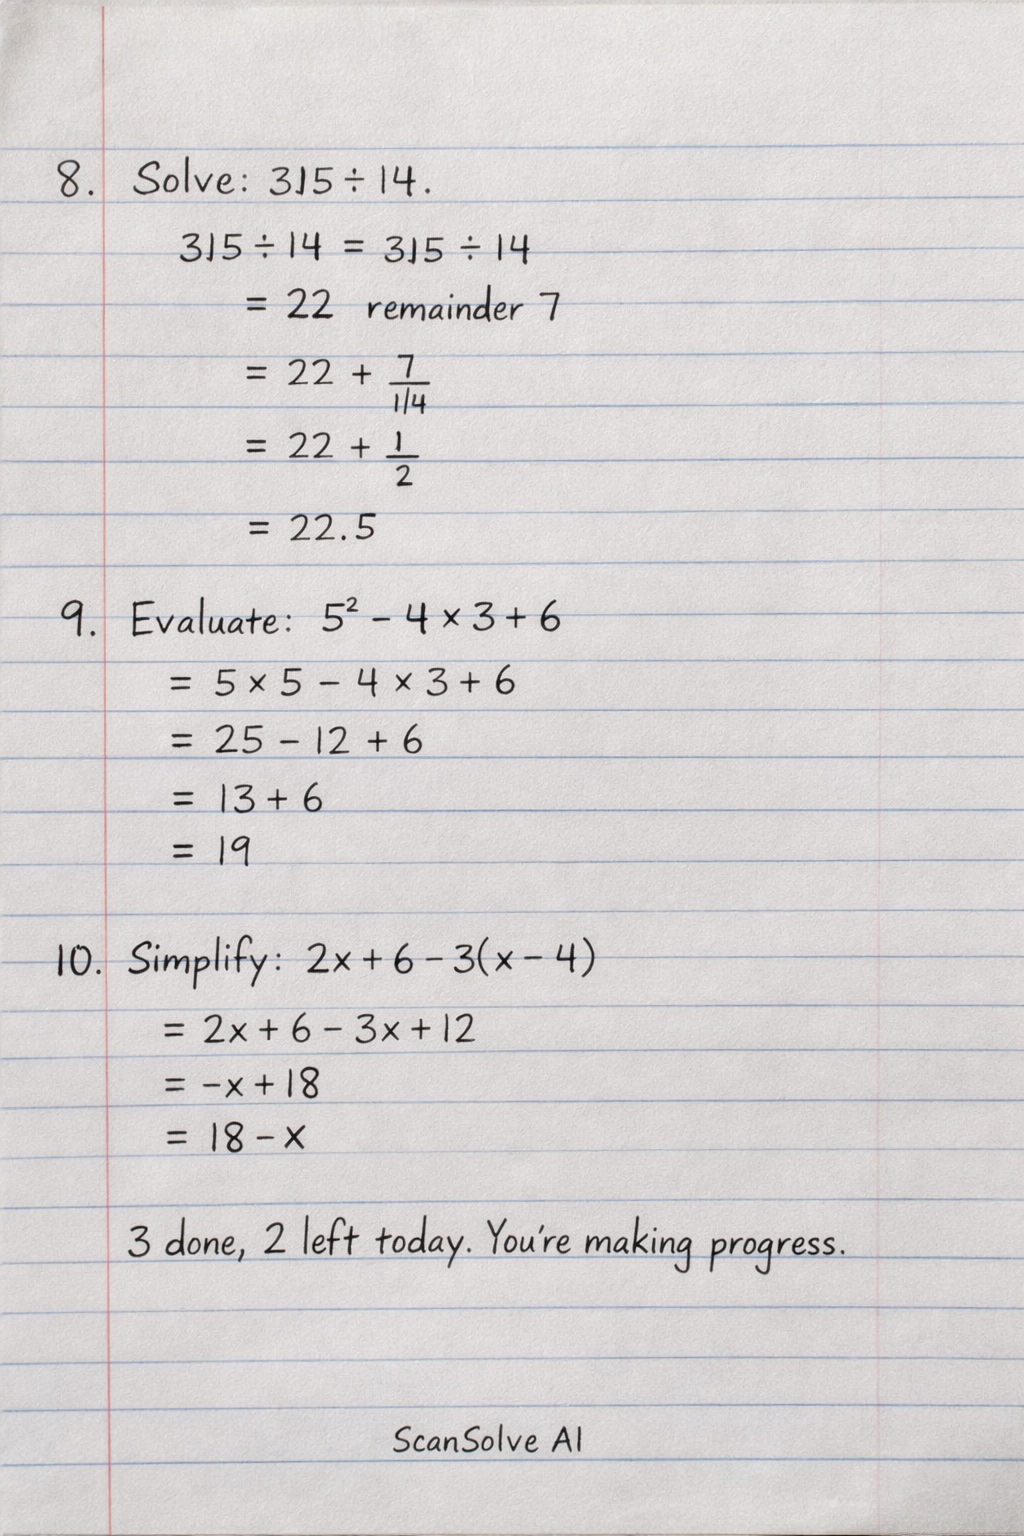 8. Solve: 315 ÷ 14.
315 ÷ 14 = 315 ÷ 14
= 22 remainder 7
= 22 + 7/14
= 22 + 1/2
= 22.5
9. Evaluate: 5² − 4 × 3 + 6
= 5 × 5 − 4 × 3 + 6
= 25 − 12 + 6
= 13 + 6
= 19
10. Simplify: 2x + 6 − 3(x − 4)
= 2x + 6 − 3x + 12
= −x + 18
= 18 − x
3 done, 2 left today. You're making progress.
ScanSolve AI